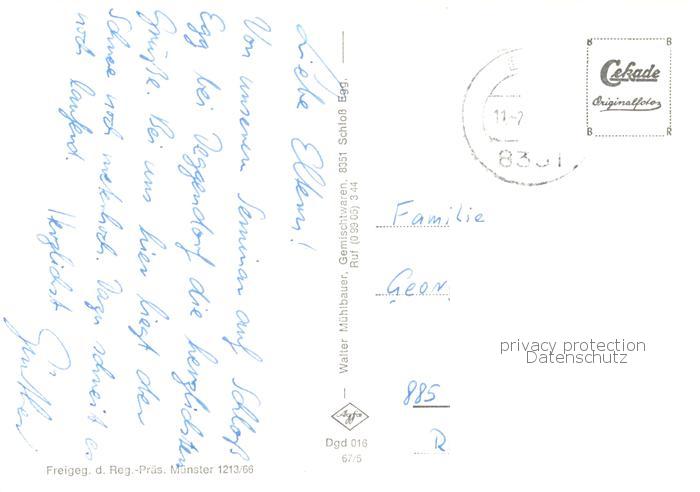 Liebe Eltern!
Von unserem Seminar auf Schloß
Egg bei Deggendorf die herzlichsten
Grüße. Bei uns hier liegt der
Schnee noch meterhoch. Dazu schneit es
noch laufend.
Herzlichst
Günther
Walter Mühlbauer, Gemischtwaren, 8351 Schloß Egg.
Ruf (0 99 05) 3 44
Agfa
Dgd 016
67/5
Freigeg. d. Reg.-Präs. Münster 1213/66
11.-2
8351
B R
Cekade
Originalfotos
B R
Familie
Geor
privacy protection
Datenschutz
885
R